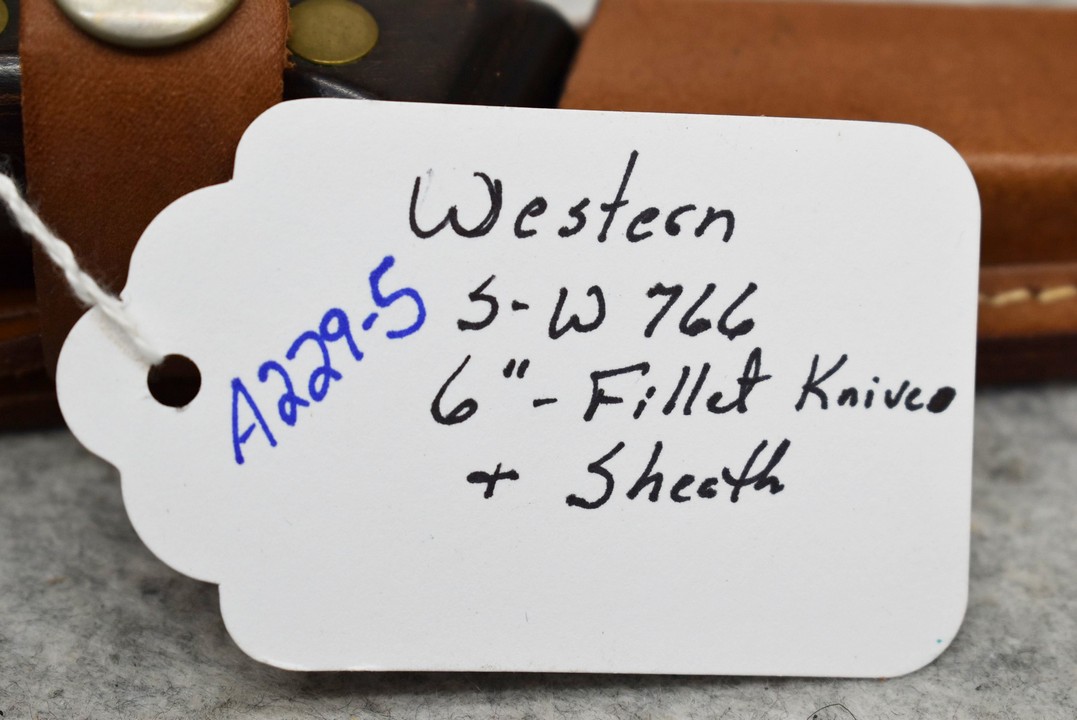 Western
S-W 766
6" - Fillet Knive
+ Sheath
A229-5